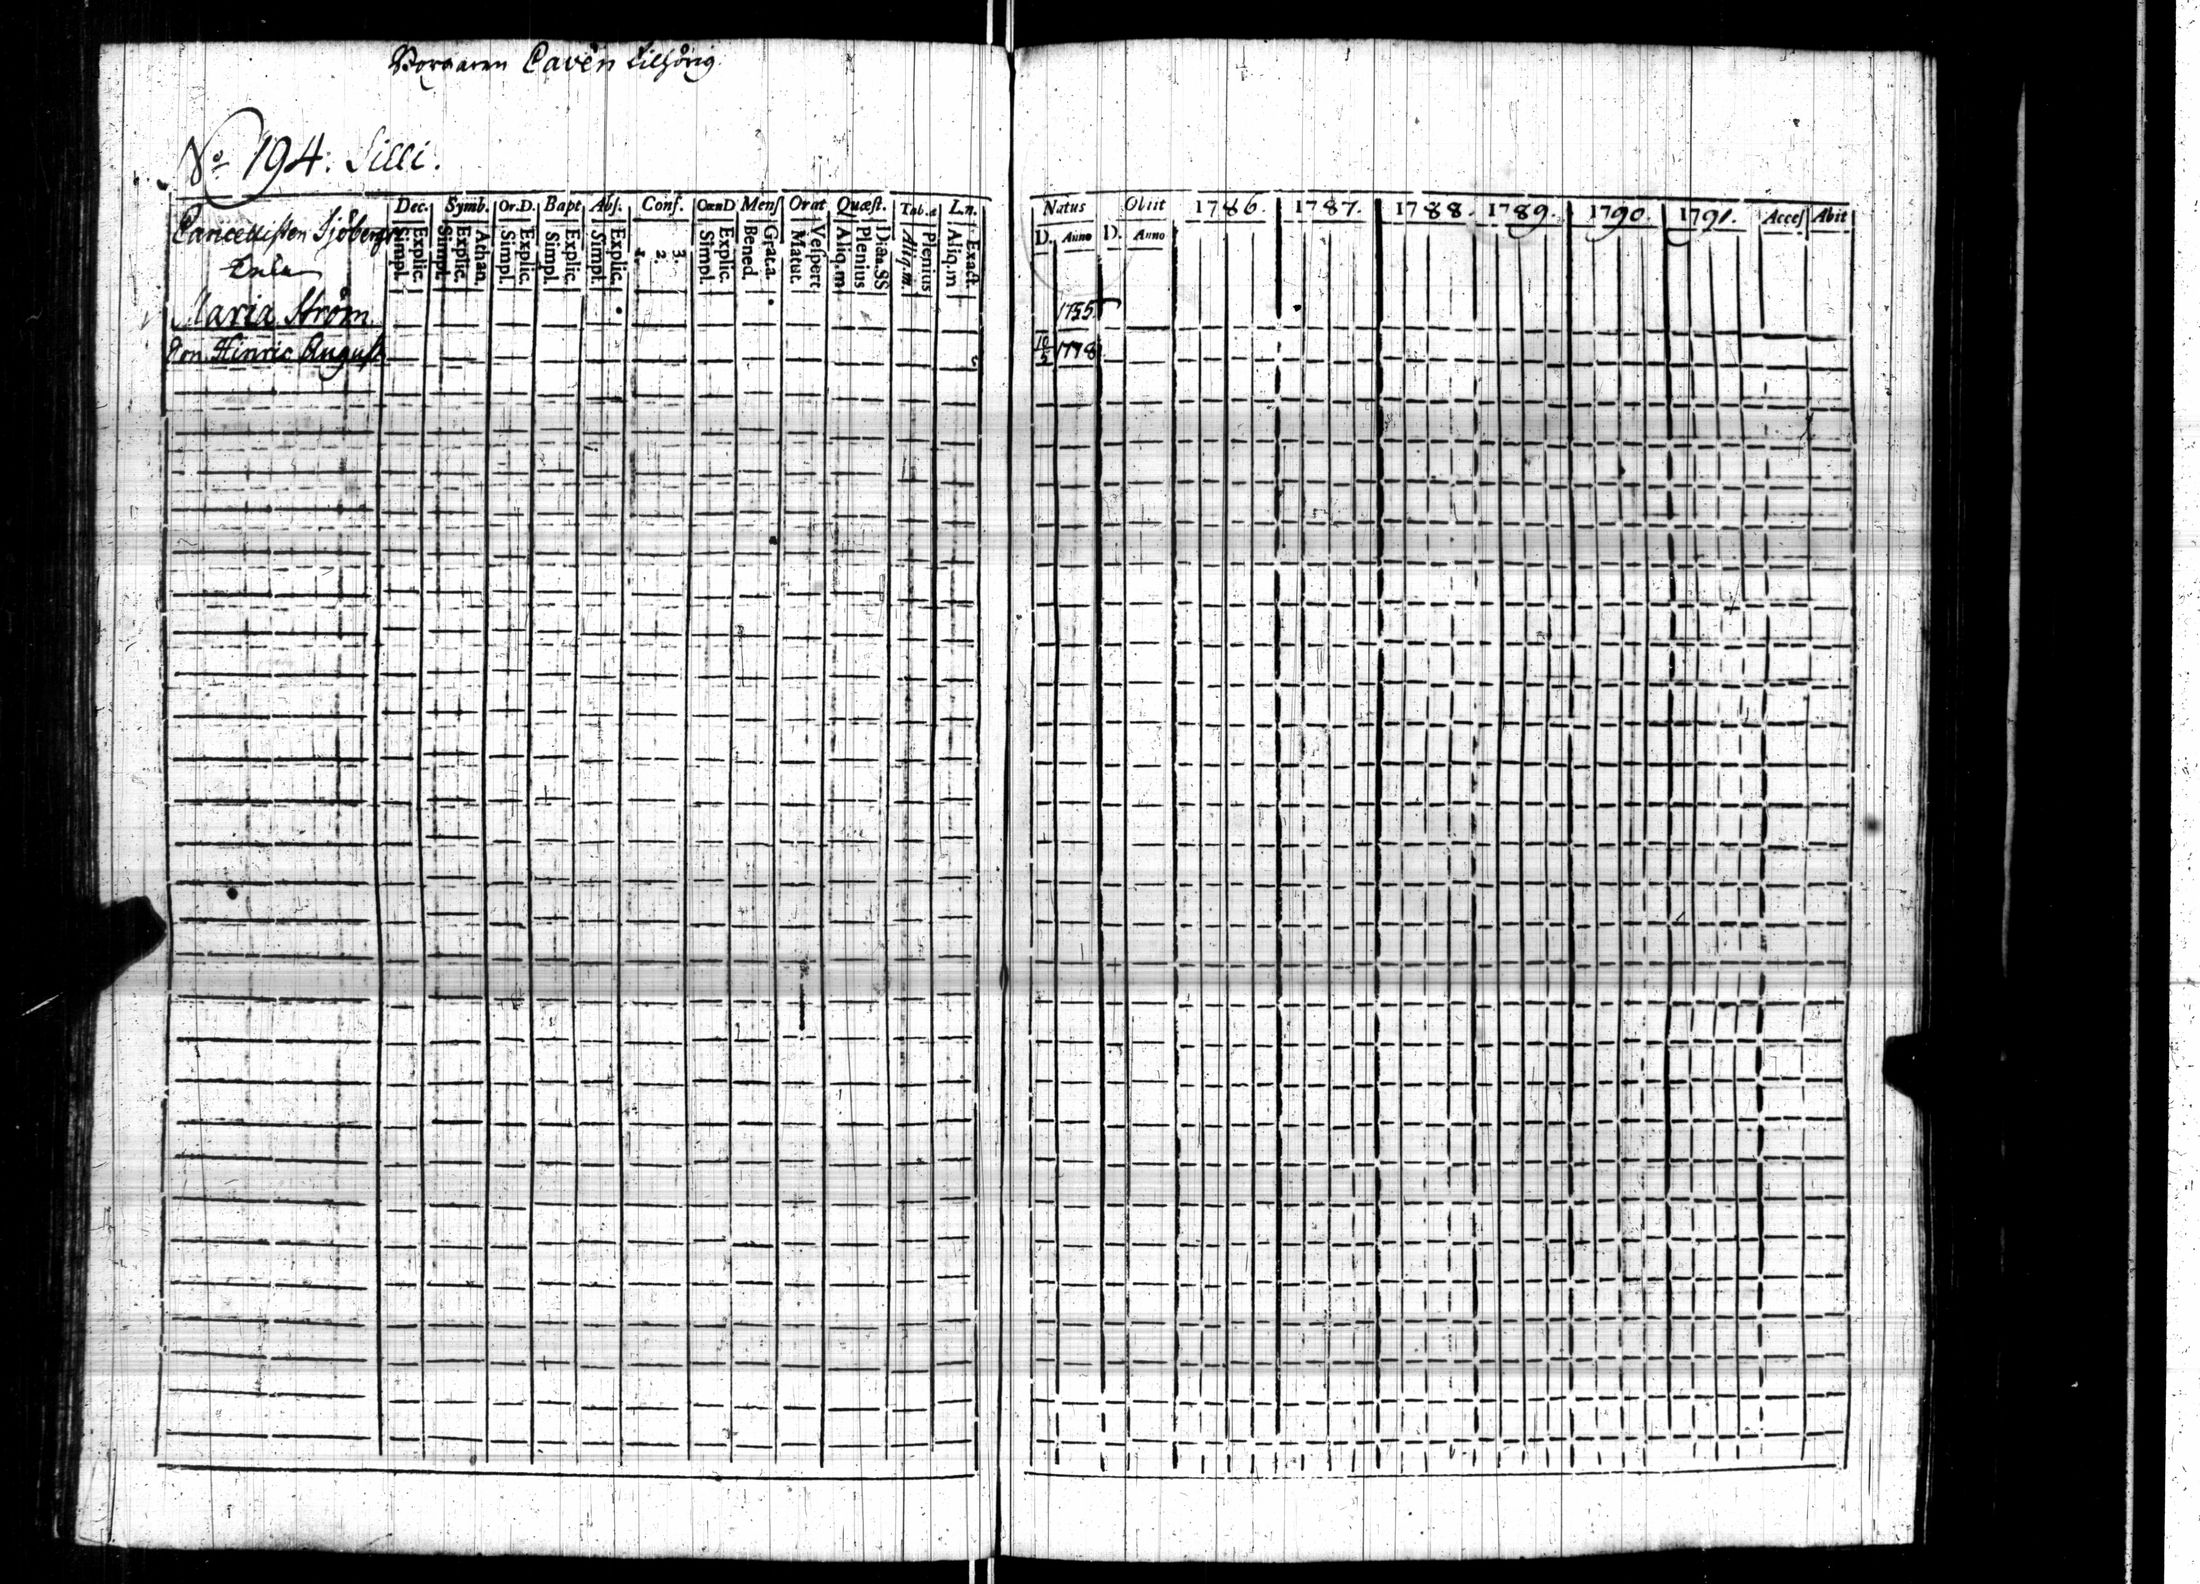 Borgaren Cavén tilhörig.
No 194. Silli.
Dec. Symb. Or.D. Bapt Abs. Conf. CœnD Mens Orat Quæst. Tab.æ L.n.
Simpl. Explic. Simpl. Explic. Athan. Simpl. Explic. Simpl. Explic. Simpl. Explic. 1. 2. 3. Simpl. Explic. Bened. Grat.a. Matut. Vespert Aliq.m Plenius Dicta.SS Aliq.m. Plenius Aliq.m Exact
Cancellisten Sjöbergs
Enka
Maria Ström.
Son Hinric August
Natus Obiit 1786. 1787. 1788. 1789. 1790. 1791. Acces Abit
D. Anno D. Anno
1755.
10/5 1778